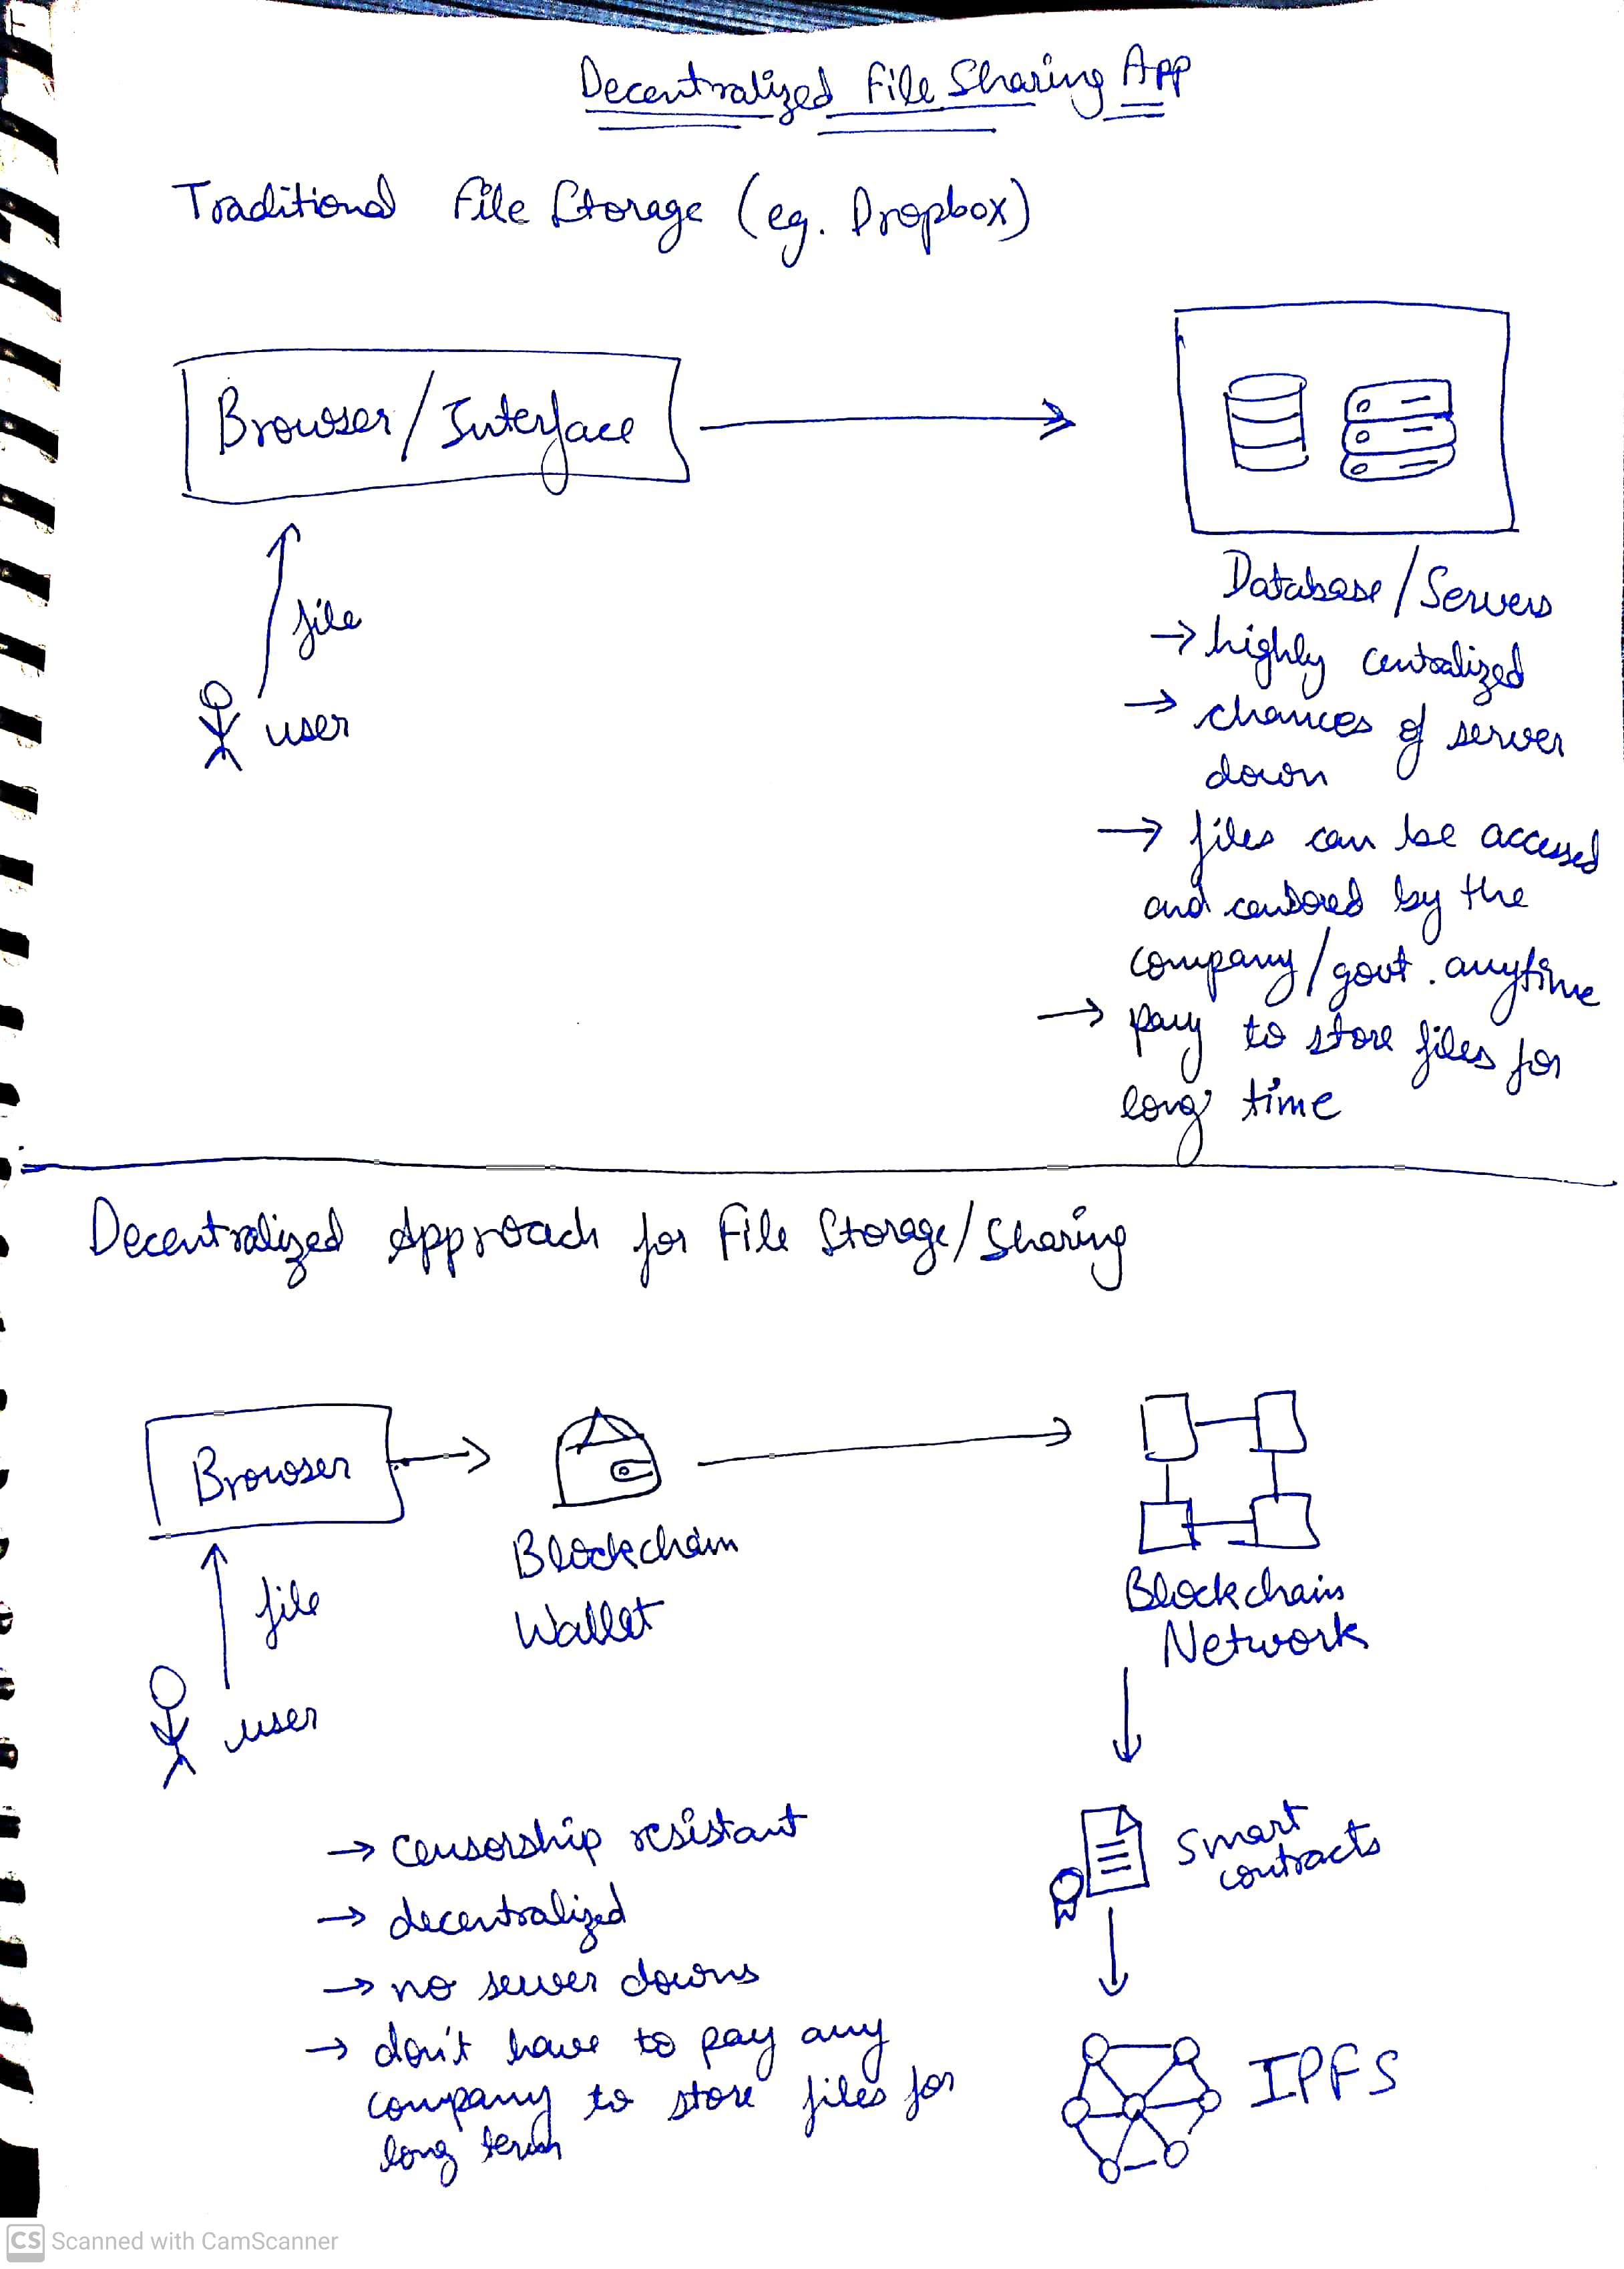 Decentralized File Sharing App
Traditional File Storage (eg. Dropbox)
Browser/Interface
file
user
Database/Servers
→ highly centralized
→ chances of server
down
→ files can be accessed
and censored by the
company/govt. anytime
→ pay to store files for
long time
Decentralized Approach for File Storage/Sharing
Browser
file
user
Blockchain
Wallet
Blockchain
Network
smart
contracts
IPFS
→ censorship resistant
→ decentralized
→ no server downs
→ don't have to pay any
company to store files for
long term
CS Scanned with CamScanner